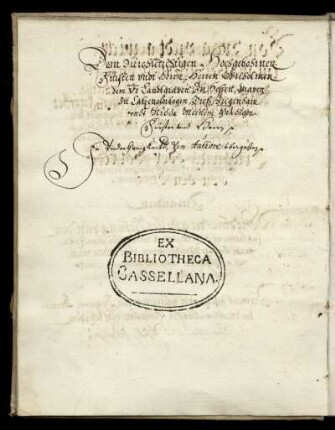 Dem Durchleuchtigen Hochgebohrnen
Fürsten undt Herrn, Herren Wilhelmen
dem VI Landtgraven zu Hessen, Graven
zu Catzenelnbogen, Dietz, Ziegenhain
undt Nidda Meinem Gnedigen
Fürsten und Herrn
Von Autore übergeben
EX
BIBLIOTHECA
CASSELLANA.